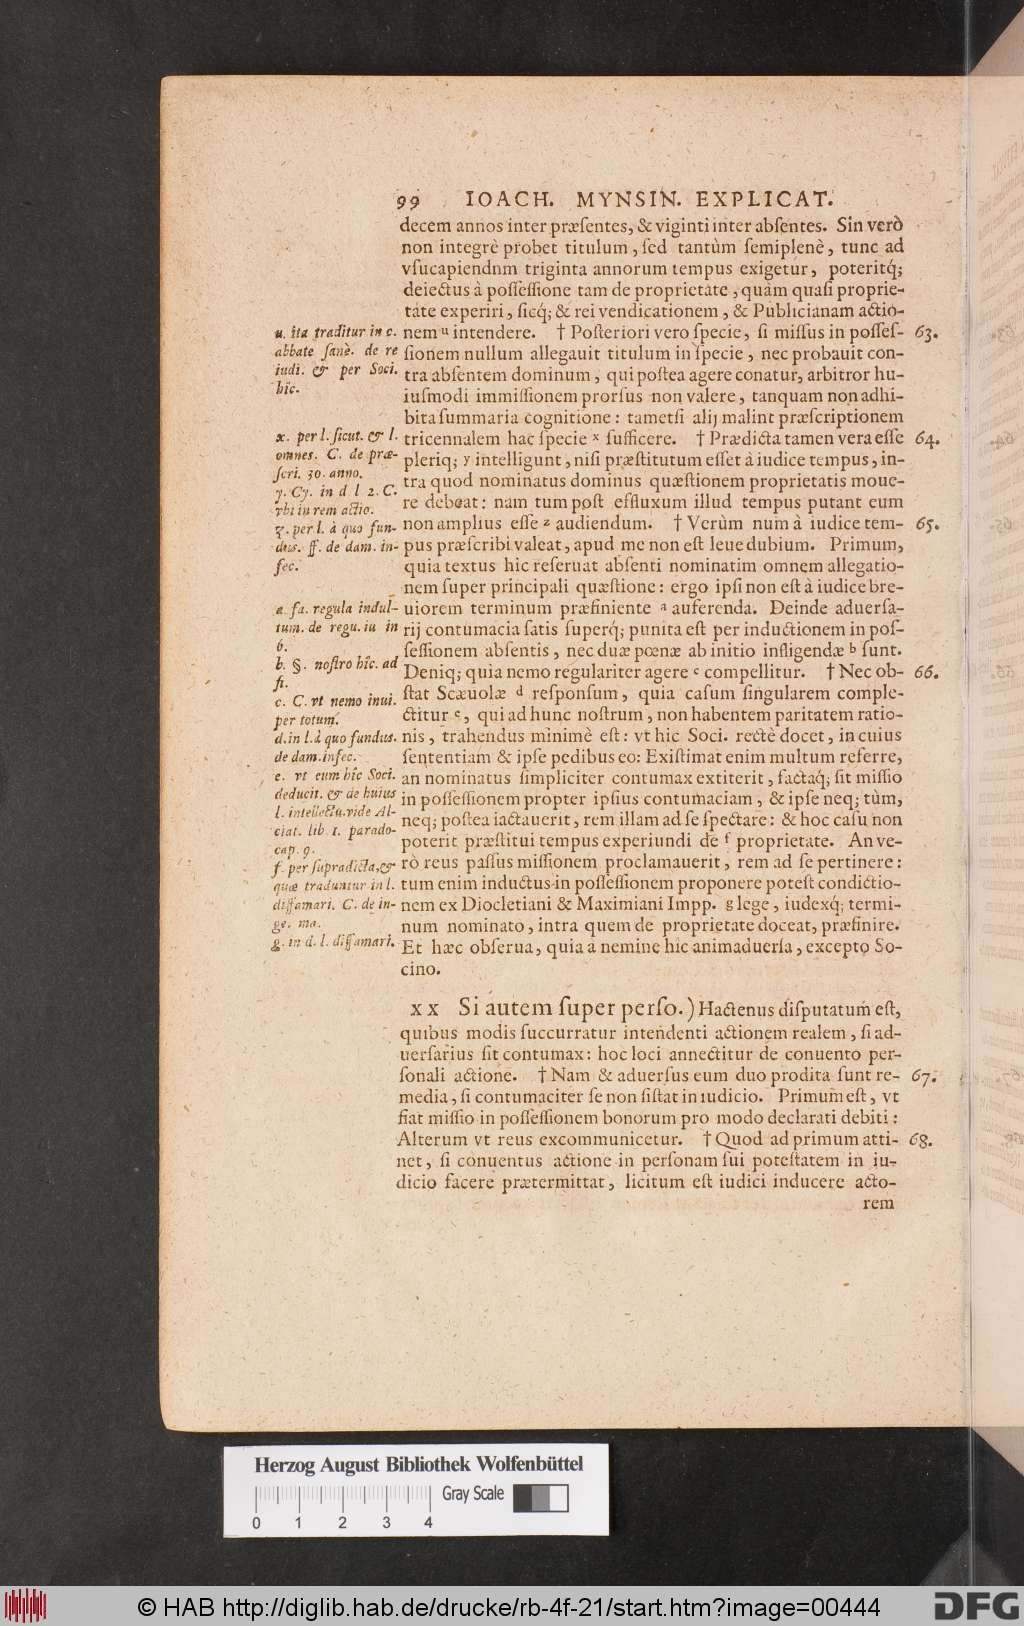 99 IOACH. MYNSIN. EXPLICAT.
decem annos inter præsentes, & viginti inter absentes. Sin verò
non integrè probet titulum, sed tantùm semiplenè, tunc ad
vsucapiendnm triginta annorum tempus exigetur, poteritq́;
deiectus à possessione tam de proprietate, quàm quasi proprie-
tate experiri, sicq́; & rei vendicationem, & Publicianam actio-
nem u intendere. † Posteriori vero specie, si missus in posses- 63.
sionem nullum allegauit titulum in specie, nec probauit con-
tra absentem dominum, qui postea agere conatur, arbitror hu-
iusmodi immissionem prorsus non valere, tanquam non adhi-
bita summaria cognitione: tametsi alij malint præscriptionem
tricennalem hac specie x sufficere. † Prædicta tamen vera esse 64.
pleriq; y intelligunt, nisi præstitutum esset à iudice tempus, in-
tra quod nominatus dominus quæstionem proprietatis moue-
re debeat: nam tum post effluxum illud tempus putant eum
non amplius esse z audiendum. † Verùm num à iudice tem- 65.
pus præscribi valeat, apud me non est leue dubium. Primum,
quia textus hic reseruat absenti nominatim omnem allegatio-
nem super principali quæstione: ergo ipsi non est à iudice bre-
uiorem terminum præfiniente a auferenda. Deinde aduersa-
rij contumacia satis superq́; punita est per inductionem in pos-
sessionem absentis, nec duæ pœnæ ab initio infligendæ b sunt.
Deniq; quia nemo regulariter agere c compellitur. † Nec ob- 66.
stat Scæuolæ d responsum, quia casum singularem comple-
ctitur e, qui ad hunc nostrum, non habentem paritatem ratio-
nis, trahendus minimè est: vt hic Soci. rectè docet, in cuius
sententiam & ipse pedibus eo: Existimat enim multum referre,
an nominatus simpliciter contumax extiterit, factaq́; sit missio
in possessionem propter ipsius contumaciam, & ipse neq; tùm,
neq; postea iactauerit, rem illam ad se spectare: & hoc casu non
poterit præstitui tempus experiundi de f proprietate. An ve-
rò reus passus missionem proclamauerit, rem ad se pertinere:
tum enim inductus in possessionem proponere potest condictio-
nem ex Diocletiani & Maximiani Impp. g lege, iudexq́; termi-
num nominato, intra quem de proprietate doceat, præfinire.
Et hæc obserua, quia à nemine hic animaduersa, excepto So-
cino.
u. ita traditur in c.
abbate sanè. de re
iudi. & per Soci.
hîc.
x. per l. sicut. & l.
omnes. C. de præ-
scri. 30. anno.
y. Cy. in d l 2. C.
vbi in rem actio.
z. per l. à quo fun-
dus. ff. de dam. in-
fec.
a. fa. regula indul-
tum. de regu. iu in
6.
b. §. nostro hîc. ad
fi.
c. C. vt nemo inui.
per totum.
d. in l. à quo fundus.
de dam. infec.
e. vt eum hîc Soci.
deducit. & de huius
l. intellectu. vide Al-
ciat. lib 1. parado-
cap. 9.
f. per supradicta, &
quæ traduntur in l.
diffamari. C. de in-
ge. ma.
g. in d. l. diffamari.
XX Si autem super perso.) Hactenus disputatum est,
quibus modis succurratur intendenti actionem realem, si ad-
uersarius sit contumax: hoc loci annectitur de conuento per-
sonali actione. † Nam & aduersus eum duo prodita sunt re- 67.
media, si contumaciter se non sistat in iudicio. Primum est, vt
fiat missio in possessionem bonorum pro modo declarati debiti:
Alterum vt reus excommunicetur. † Quod ad primum atti- 68.
net, si conuentus actione in personam sui potestatem in iu-
dicio facere prætermittat, licitum est iudici inducere acto-
rem
Herzog August Bibliothek Wolfenbüttel
Gray Scale
0 1 2 3 4
© HAB http://diglib.hab.de/drucke/rb-4f-21/start.htm?image=00444
DFG